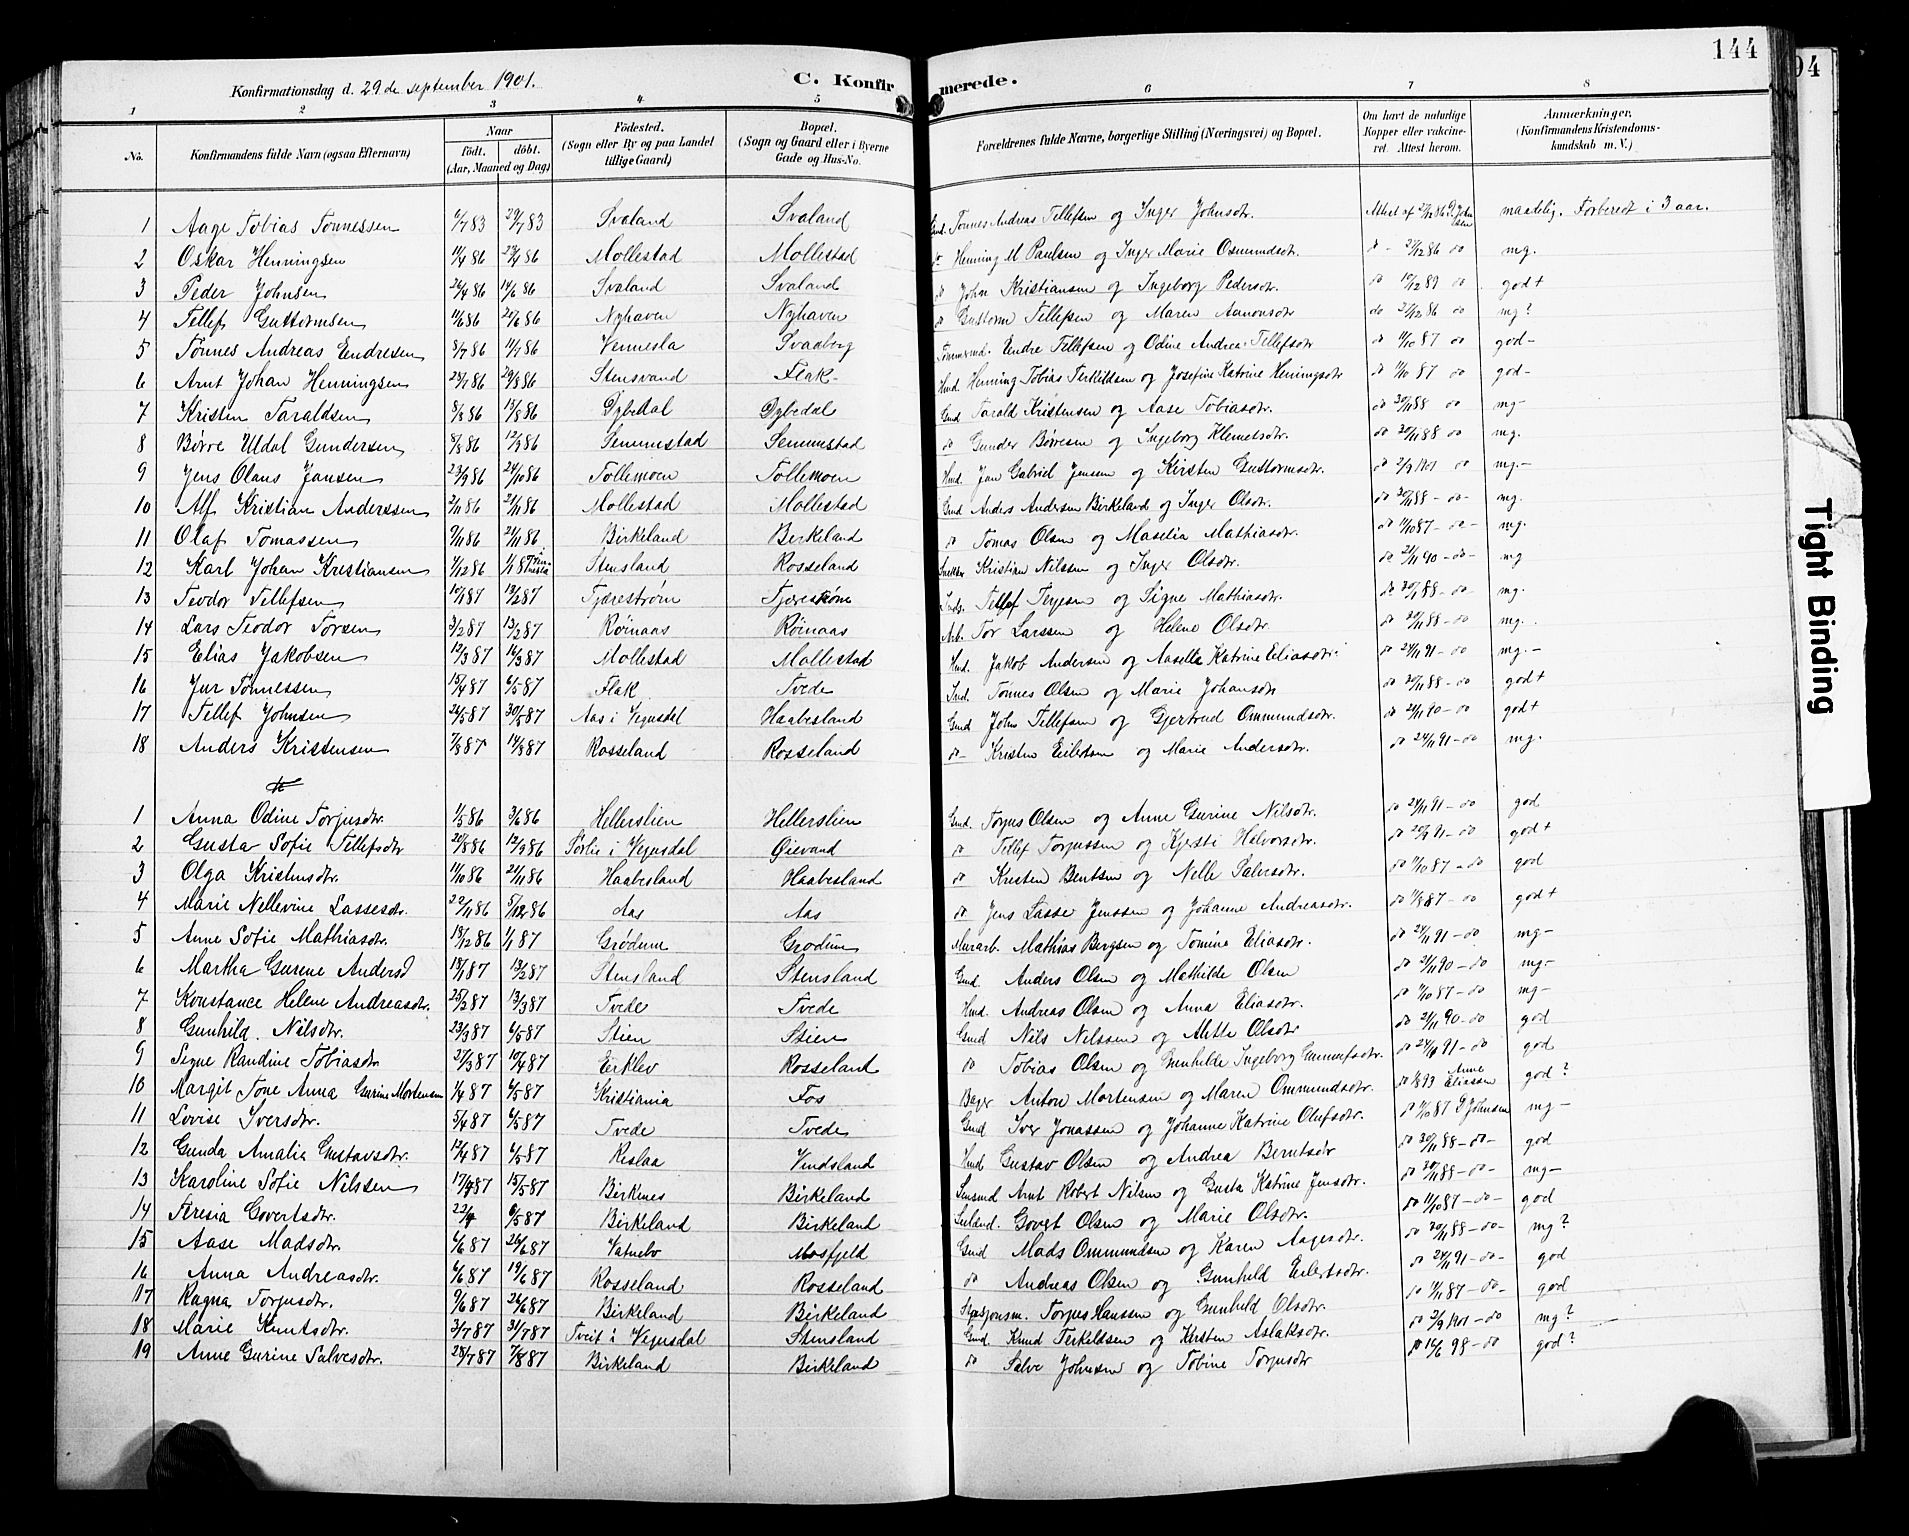 144
94
Konfirmationsdag d. 29de september 1901.
C. Konfirmerede.
1 2 3 4 5 6 7 8
No. Konfirmandens fulde Navn (ogsaa Efternavn) Naar födt. döbt. (Aar, Maaned og Dag) Födested. (Sogn eller By og paa Landet tillige Gaard) Bopæl. (Sogn og Gaard eller i Byerne Gade og Hus-No. Forældrenes fulde Navne, borgerlige Stilling (Næringsvei) og Bopæl. Om havt de naturlige Kopper eller vakcineret. Attest herom. Anmærkninger. (Konfirmandens Kristendomskundskab m. V.)
1 Aage Tobias Tønnessen 6/7 83 29/7 83 Svaland Svaland Gmd. Tønnes Andreas Tellefsen og Inger Johnsdr. Attest af maadelig. Forberedt i 3 aar.
2 Oskar Henningsen 11/4 86 Mollestad Mollestad do Henning M Paulsen og Inger Marie Osmundsdr. do - 27/12 86 do mg.
3 Peder Johnsen 26/4 86 14/6 86 Svaland Svaland do John Kristiansen og Ingeborg Pedersdr. do 10/12 89 do god+
4 Tellef Guttormsen 11/6 86 Nyhaven Nyhaven do Guttorm Tellefsen og Maren Aanonsdr do 27/12 86 do mg?
5 Tønnes Andreas Endresen 8/7 86 11/7 86 Vennesla Svaaborg Tømmermd. Endre Tellefsen og Odine Andrea Tellefsdr do 11/10 87 do god-
6 Arnt Johan Henningsen 25/7 86 29/8 86 Stensvand Flak Hmd. Henning Tobias Terkeldsen og Josefine Katrine Henningsdr do 11/10 87 do god-
7 Kristen Taraldsen 8/8 86 15/8 86 Dybedal Dybedal Gmd Tarald Kristensen og Aase Tobiasdr. do 30/11 88 do mg-
8 Børre Uldal Gundersen 8/8 86 12/9 86 Senumstad Senumstad do Gunder Børresen og Ingeborg Klemetsdr. do 30/11 88 do mg.
9 Jens Olaus Jansen 23/9 86 24/10 86 Tollemoen Tollemoen Hmd. Jan Gabriel Jensen og Kirsten Guttormsdr. do 2/9 1901 do mg.-
10 Alf Kristian Anderssen 2/11 86 21/11 86 Mollestad Mollestad Gmd Anders Andersen Birkeland og Inger Olsdr. do 30/11 88 - do - mg.
11 Olaf Tomassen 9/11 86 21/11 86 Birkeland Birkeland do Tomas Olsen og Maselia Mathiasdr. do 11/10 87 - do - mg.
12 Karl Johan Kristiansen 1/12 86 1/1 87 Stensland Rosseland Snekker Kristian Nilssen og Inger Olsdr. do 21/11 90 - do - mg
13 Teodor Tellefsen 10/1 87 13/2 87 Tjærestrøm Tjærestrøm Inds. Tellef Terjesen og Signe Mathiasdr. do 30/11 88 - do mg.
14 Lars Teodor Torsen 3/2 87 13/2 87 Røinaas Røinaas Arb. Tor Larssen og Helene Olsdr. do 30/11 88 - do mg.
15 Elias Jakobsen 12/3 87 14/3 87 Mollestad Mollestad Hmd. Jakob Andersen og Aasella Katrine Eliasdr. do 24/11 91 - do mg.-
16 Jur Tønnessen 15/4 87 6/5 87 Flak Tvede Ind. Tønnes Olsen og Marie Johansdr do 30/11 88 - do god+
17 Tellef Johnsen 24/5 87 30/5 87 Aas i Vegusdal Haabesland Gmd John Tellefsen og Gjertrud Ommundsdr. do 21/11 90 - do god+
18 Anders Kristensen 7/8 87 14/8 87 Rosseland Rosseland do - Kristen Eilertsen og Marie Andersdr. do 24/11 91 - do mg.
1 Anna Odine Torjusdr. 1/5 86 3/6 86 Hellerslien Hellerslien Gmd. Torjus Olsen og Anne Gurine Nilsdr. do 24/11 91 - do god
2 Gusta Sofie Tellefsdr 20/8 86 12/9 86 Sørlie i Vegusdal Øievand do Tellef Torjussen og Kjersti Halvorsdr. do 20/9 91 - do god+
3 Olga Kristensdr. 11/10 86 21/11 86 Haabesland Haabesland do Kristen Bentsen og Nelle Salvesdr. do 11/10 87 - do god
4 Marie Nellevine Lassesdr. 22/11 86 5/12 86 Aas Aas do Jens Lasse Jenssen og Johanne Andreasdr. do 11/8 87 - do god+
5 Anne Sofie Mathiasdr. 13/12 86 1/1 87 Grødum Grødum Murarb. Mathias Bergsen og Tomine Eliasdr. do 24/11 91 - do mg-
6 Martha Gurine Andersd 18/1 87 13/2 87 Stensland Stensland Gmd. Anders Olsen og Mathilde Olsen do 21/11 90 - do mg.-
7 Konstance Helene Andreasdr. 25/2 87 13/3 87 Tvede Tvede Hmd. Andreas Olsen og Anna Eliasdr. do 11/10 87 - do mg-
8 Gunhild Nilsdr. 23/3 87 6/5 87 Stien Stien Gmd Nils Nilssen og Alette Olsdr do 21/11 90 - do god
9 Signe Randine Tobiasdr 27/3 87 10/4 87 Eirklev Rosseland do Tobias Olsen og Gunhilde Ingeborg do 24/11 91 - do god
10 Margit Tone Anna Gurine Mortensen 1/4 87 6/5 87 Kristiania Fos Bager Anton Mortensen og Maren Ommundsdr. do 93 Anne Eliassen god?
11 Lovise Iversdr. 5/4 87 6/5 87 Tvede Tvede Gmd Iver Jonassen og Johanne Katrine Olufsdr. do 11/10 87 D Johnsen mg-
12 Gunda Amalia Gustavsdr. 12/4 87 6/5 87 Reslaa Vindsland Hmd Gustav Olsen og Andrea Berntsdr do 30/11 88 - do - god
13 Karoline Sofie Nilssen 17/4 87 15/5 87 Birkenes Birkeland Arnt Robert Nilsen og Gusta Katrine Jensdr. do 30/11 88 - do - mg-
14 Teresia Govertsdr. 22/4 6/5 87 Birkeland Birkeland Govert Olsen og Marie Olsdr. do 11/10 87 - do - god
15 Aase Madsdr. 6/6 87 26/6 87 Vatnebo Mosfjeld Gmd Mads Ommundsen og Karen Aagesdr. do 30/11 88 - do - mg?
16 Anna Andreasdr. 6/6 87 19/6 87 Rosseland Rosseland do Andreas Olsen og Gunhild Eilertsdr. do 24/11 91 - do - god
17 Ragna Torjusdr. 9/6 87 26/6 87 Birkeland Birkeland Torjus Hanssen og Gunhild Olsdr. do 11/11 87 - do - god
18 Marie Knutsdr. 3/7 87 31/7 87 Tveit i Vegusdal Stensland Gmd. Knud Terkeldsen og Kirsten Aslaksdr. do 2/9 1901 - do mg?
19 Anne Gurine Salvesdr. 25/7 87 7/8 87 Birkeland Birkeland do Salve Johnsen og Tobine Torjusdr do 14/6 98 - do god?
Tight Binding